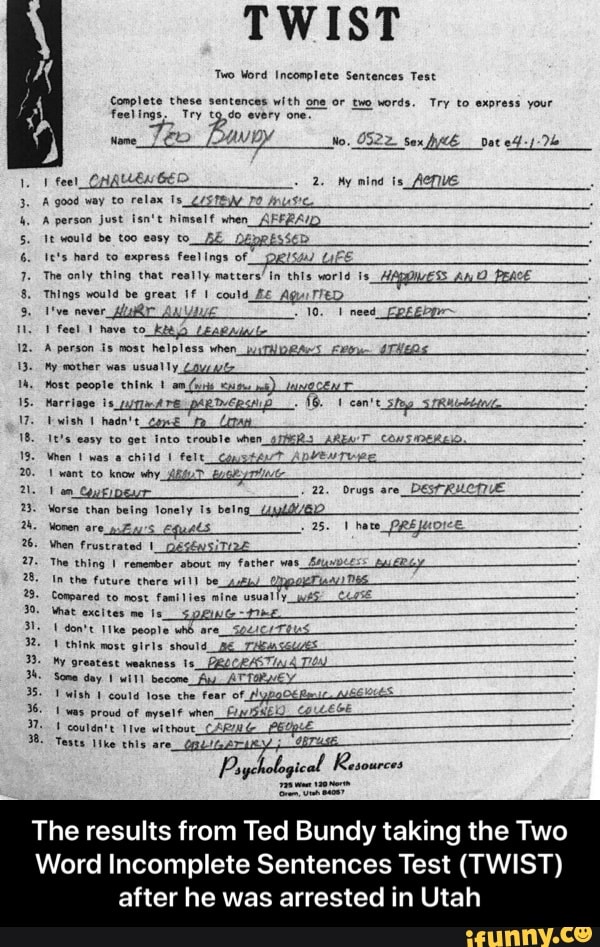 TWIST
Two Word Incomplete Sentences Test
Complete these sentences with one or two words. Try to express your
feelings. Try to do every one.
Name Ted Bundy No. 0522 Sex MALE Date 4-1-76
1. I feel CHALLENGED. 2. My mind is ACTIVE.
3. A good way to relax is LISTEN TO MUSIC.
4. A person just isn't himself when AFFRAID.
5. It would be too easy to BE DEPRESSED.
6. It's hard to express feelings of PRISON LIFE.
7. The only thing that really matters in this world is HAPPINESS AND PEACE.
8. Things would be great if I could BE AQUITTED.
9. I've never HURT ANYONE. 10. I need FREEDOM.
11. I feel I have to KEEP LEARNING.
12. A person is most helpless when WITHDRAWS FROM OTHERS.
13. My mother was usually LOVING.
14. Most people think I am (WHO KNOW ME) INNOCENT.
15. Marriage is INTIMATE PARTNERSHIP. 16. I can't STOP STRUGGLING.
17. I wish I hadn't COME TO UTAH.
18. It's easy to get into trouble when OTHERS AREN'T CONSIDERED.
19. When I was a child I felt CONSTANT ADVENTURE.
20. I want to know why ABOUT EVERYTHING.
21. I am CONFIDENT. 22. Drugs are DESTRUCTIVE.
23. Worse than being lonely is being UNLOVED.
24. Women are MEN'S EQUALS. 25. I hate PREJUDICE.
26. When frustrated I DESENSITIZE.
27. The thing I remember about my father was BOUNDLESS ENERGY.
28. In the future there will be NEW OPPORTUNITIES.
29. Compared to most families mine usually WAS CLOSE.
30. What excites me is SPRING-TIME.
31. I don't like people who are SOLICITOUS.
32. I think most girls should BE THEMSELVES.
33. My greatest weakness is PROCRASTINATION.
34. Some day I will become AN ATTORNEY.
35. I wish I could lose the fear of HYPODERMIC NEEDLES.
36. I was proud of myself when FINISHED COLLEGE.
37. I couldn't live without CARING PEOPLE.
38. Tests like this are OBLIGATORY; OBTUSE.
Psychological Resources
725 West 120 North
Orem, Utah 84057
The results from Ted Bundy taking the Two
Word Incomplete Sentences Test (TWIST)
after he was arrested in Utah
ifunny.co